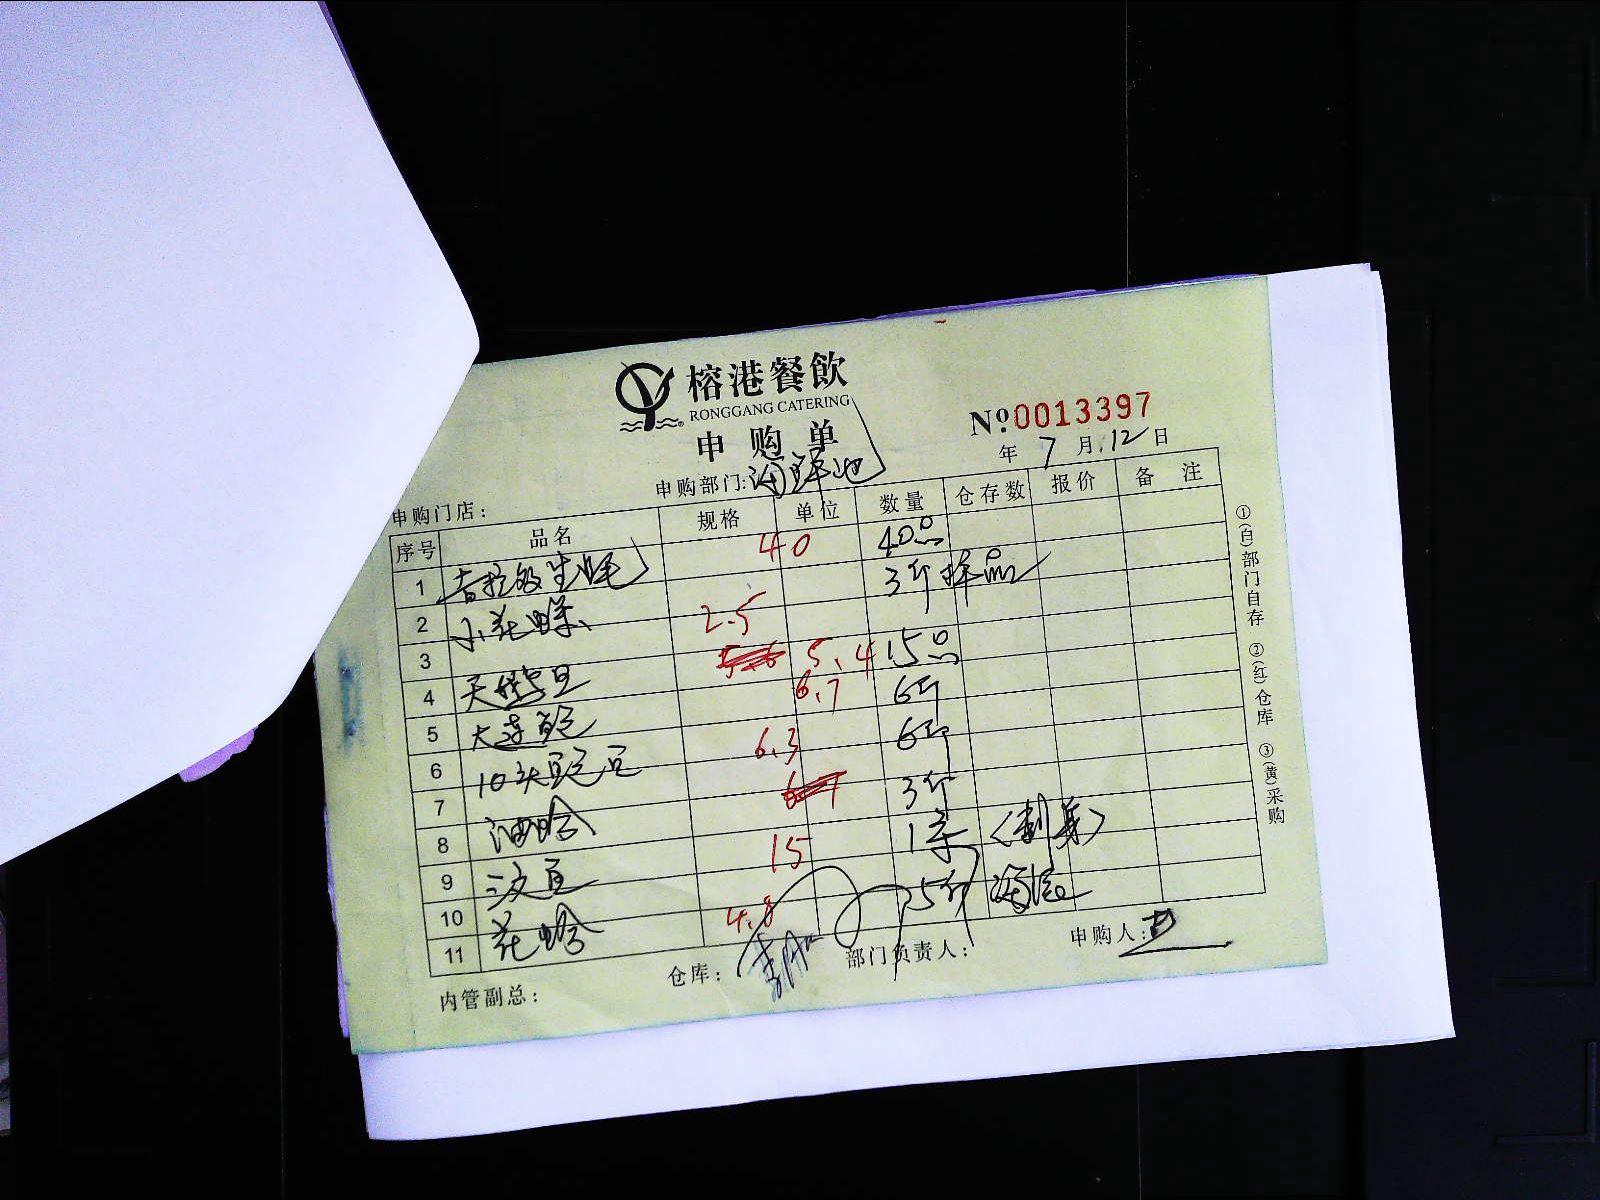 榕港餐飲
RONGGANG CATERING
申购单
Nº 0013397
年 7 月 12 日
申购部门: 海鲜池
申购门店:
序号 品名 规格 单位 数量 仓存数 报价 备注
1 吉拉多生蚝 40 40只
2 小花螺 2.5 3斤 样品
3
4 天鹅蛋 5.4 15只
5 大连鲍 6.7 6斤
6 10头鲍 6.3 6斤
7
8 油蛤 3斤
9 三文鱼 15 1条 (刺身)
10
11 花蛤 4.8 5斤
内管副总: 仓库: 部门负责人: 申购人:
①(白)部门自存 ②(红)仓库 ③(黄)采购